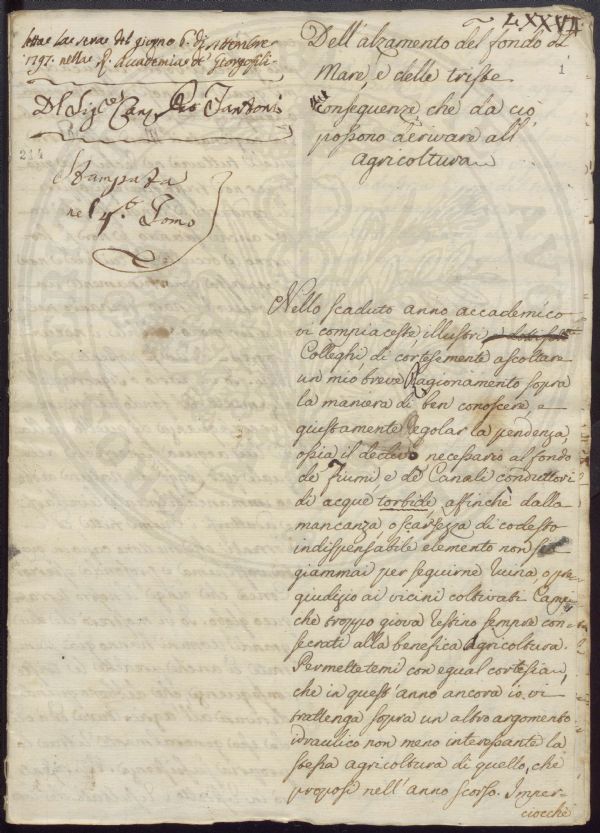 LXXVII
1
letta la sera del giorno 6. di settembre
1797. nella R. Accademia de' Georgofili.
Del Sig.re Can. Pio Fantoni
214
Stampata
nel 4.º Tomo
Dell'alzamento del fondo del
Mare, e delle triste
conseguenze che da ciò
possono derivare all'
agricoltura
Nello scaduto anno accademico
vi compiaceste, illustri
Colleghi, di cortesemente ascoltare
un mio breve Ragionamento sopra
la maniera di ben conoscere, e
giustamente regolar la pendenza,
ossia il declivo necessario al fondo
de' Fiumi, e de' Canali conduttori
di acque torbide, affinchè dalla
mancanza, o scarsezza di codesto
indispensabile elemento non sia
giammai per seguirne ruina, o pre-
giudizio ai vicini coltivati Campi,
che troppo giova restino sempre con-
secrati alla benefica Agricoltura.
Permettetemi con egual cortesia,
che in quest'anno ancora io vi
trattenga sopra un altro argomento
idraulico non meno interessante la
stessa agricoltura di quello, che
proposi nell'anno scorso. Imper-
ciocchè